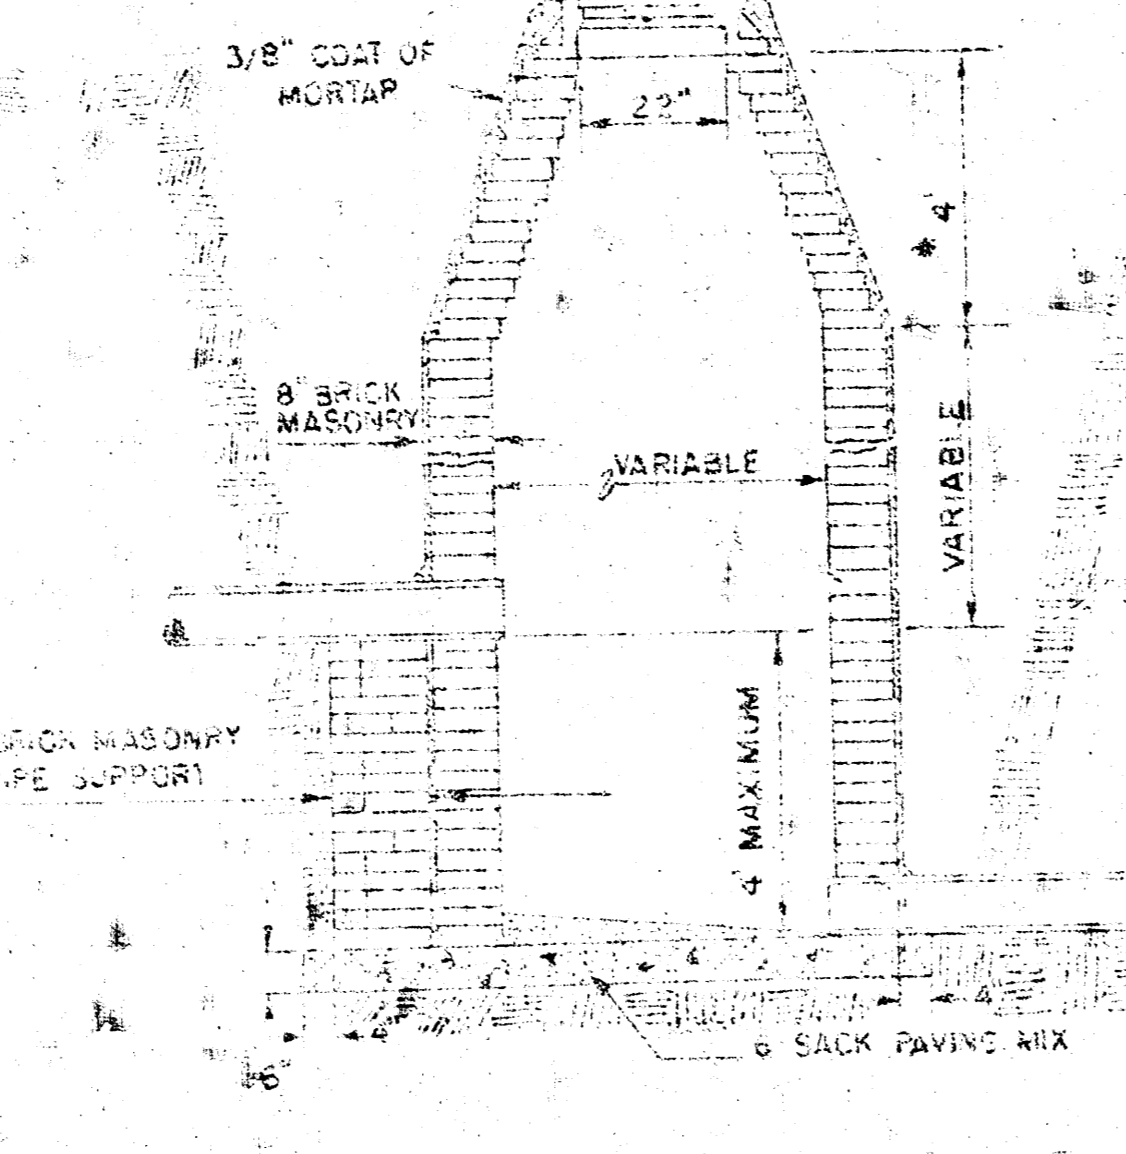 3/8" COAT OF
MORTAR
22"
* 4'
8" BRICK
MASONRY
VARIABLE
VARIABLE
BRICK MASONRY
PIPE SUPPORT
4' MAXIMUM
4"
4"
6"
6 SACK PAVING MIX